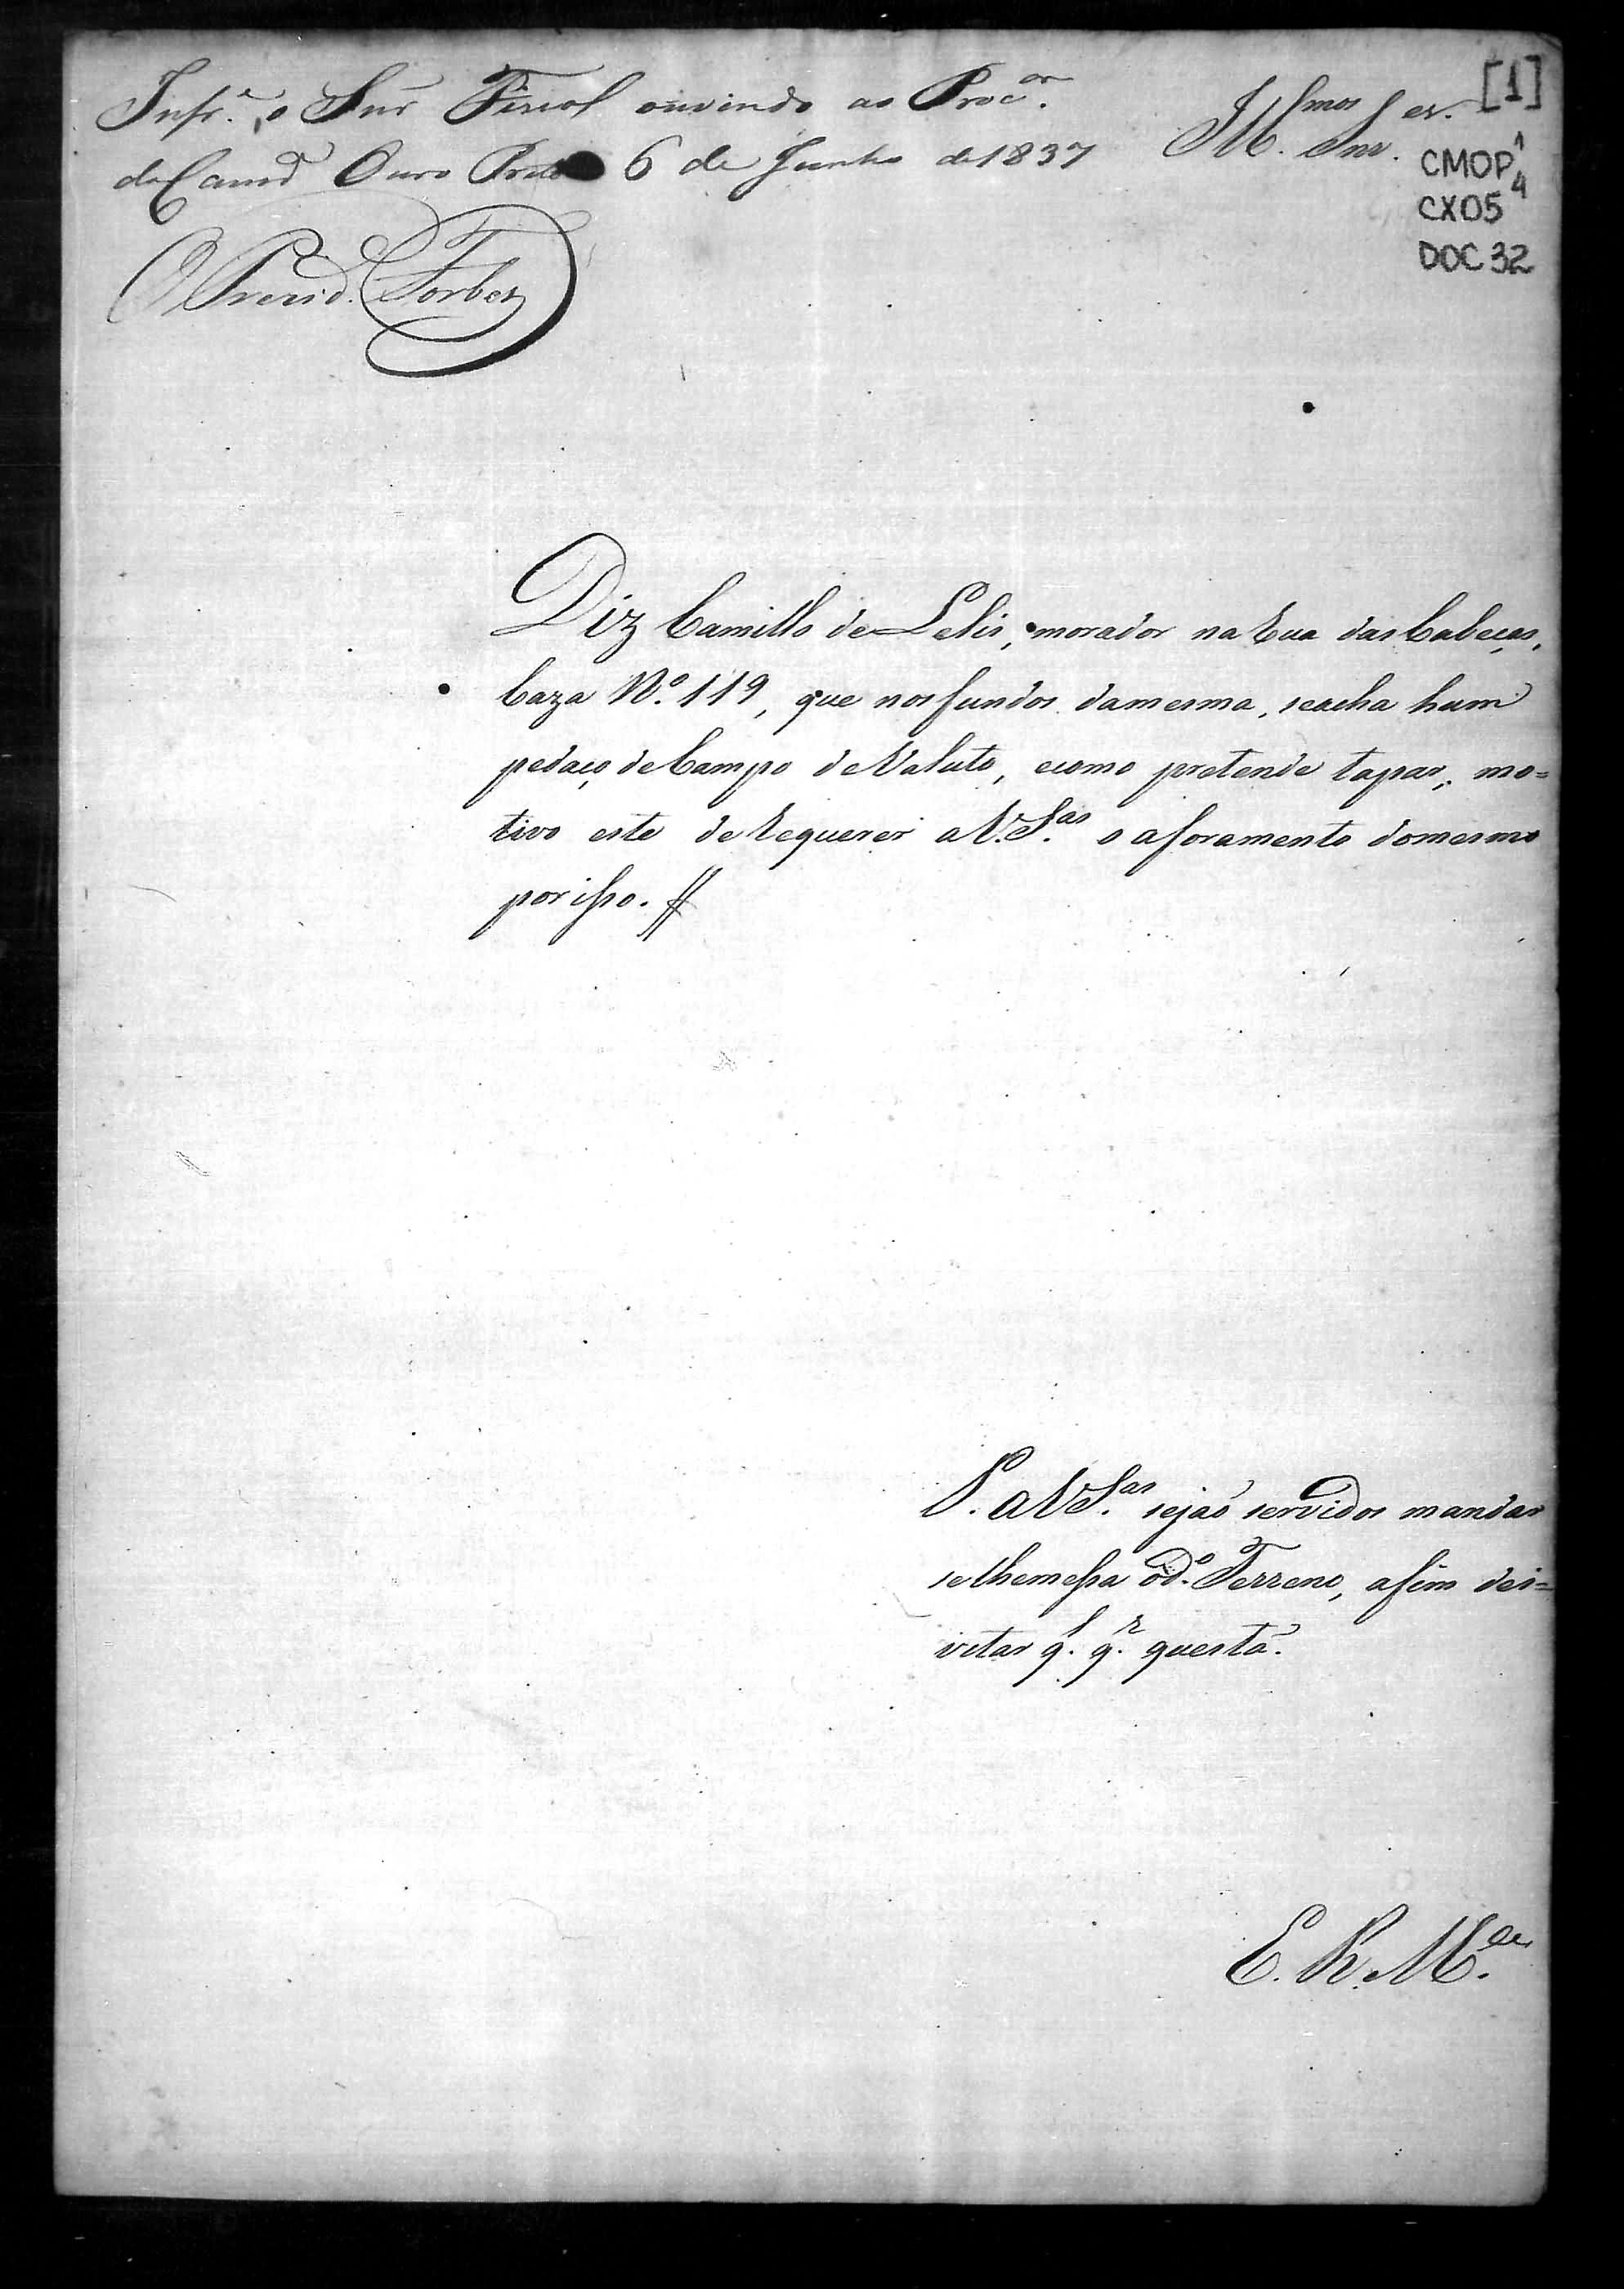 Infr.e o Snr Fiscal ouvindo ao Proc.or
da Camr.a Ouro Preto 6 de Junho de 1837
O Presid. Forbes
Ill.mos Snr.es
[1]
CMOP
CX05
DOC 32
Diz Camillo de Lelis, morador na Rua das Cabeças,
Caza N.º 119, que nos fundos damesma, seacha hum
pedaço deCampo deValuto, ecomo pretende tapar, mo=
tivo este deRequerer aV.S.as o aforamento domesmo
porisso. //
P. aV.S.as sejaõ servidos mandar
selhemessa od.º Terreno, afim dei=
vitar q.l q.r questaõ.
E. R. M.ce